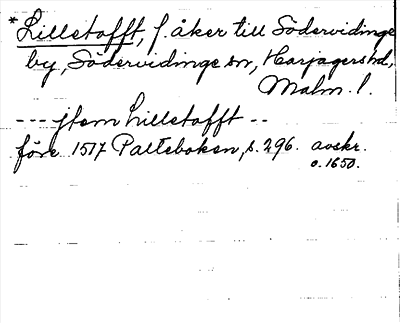 * Lilletofft, f. åker till Södervidinge
by, Södervidinge sn, Harjagers hd,
Malm. l.
--- jtem Lilletofft --
före 1517 Palteboken, s. 296. avskr.
o. 1650.